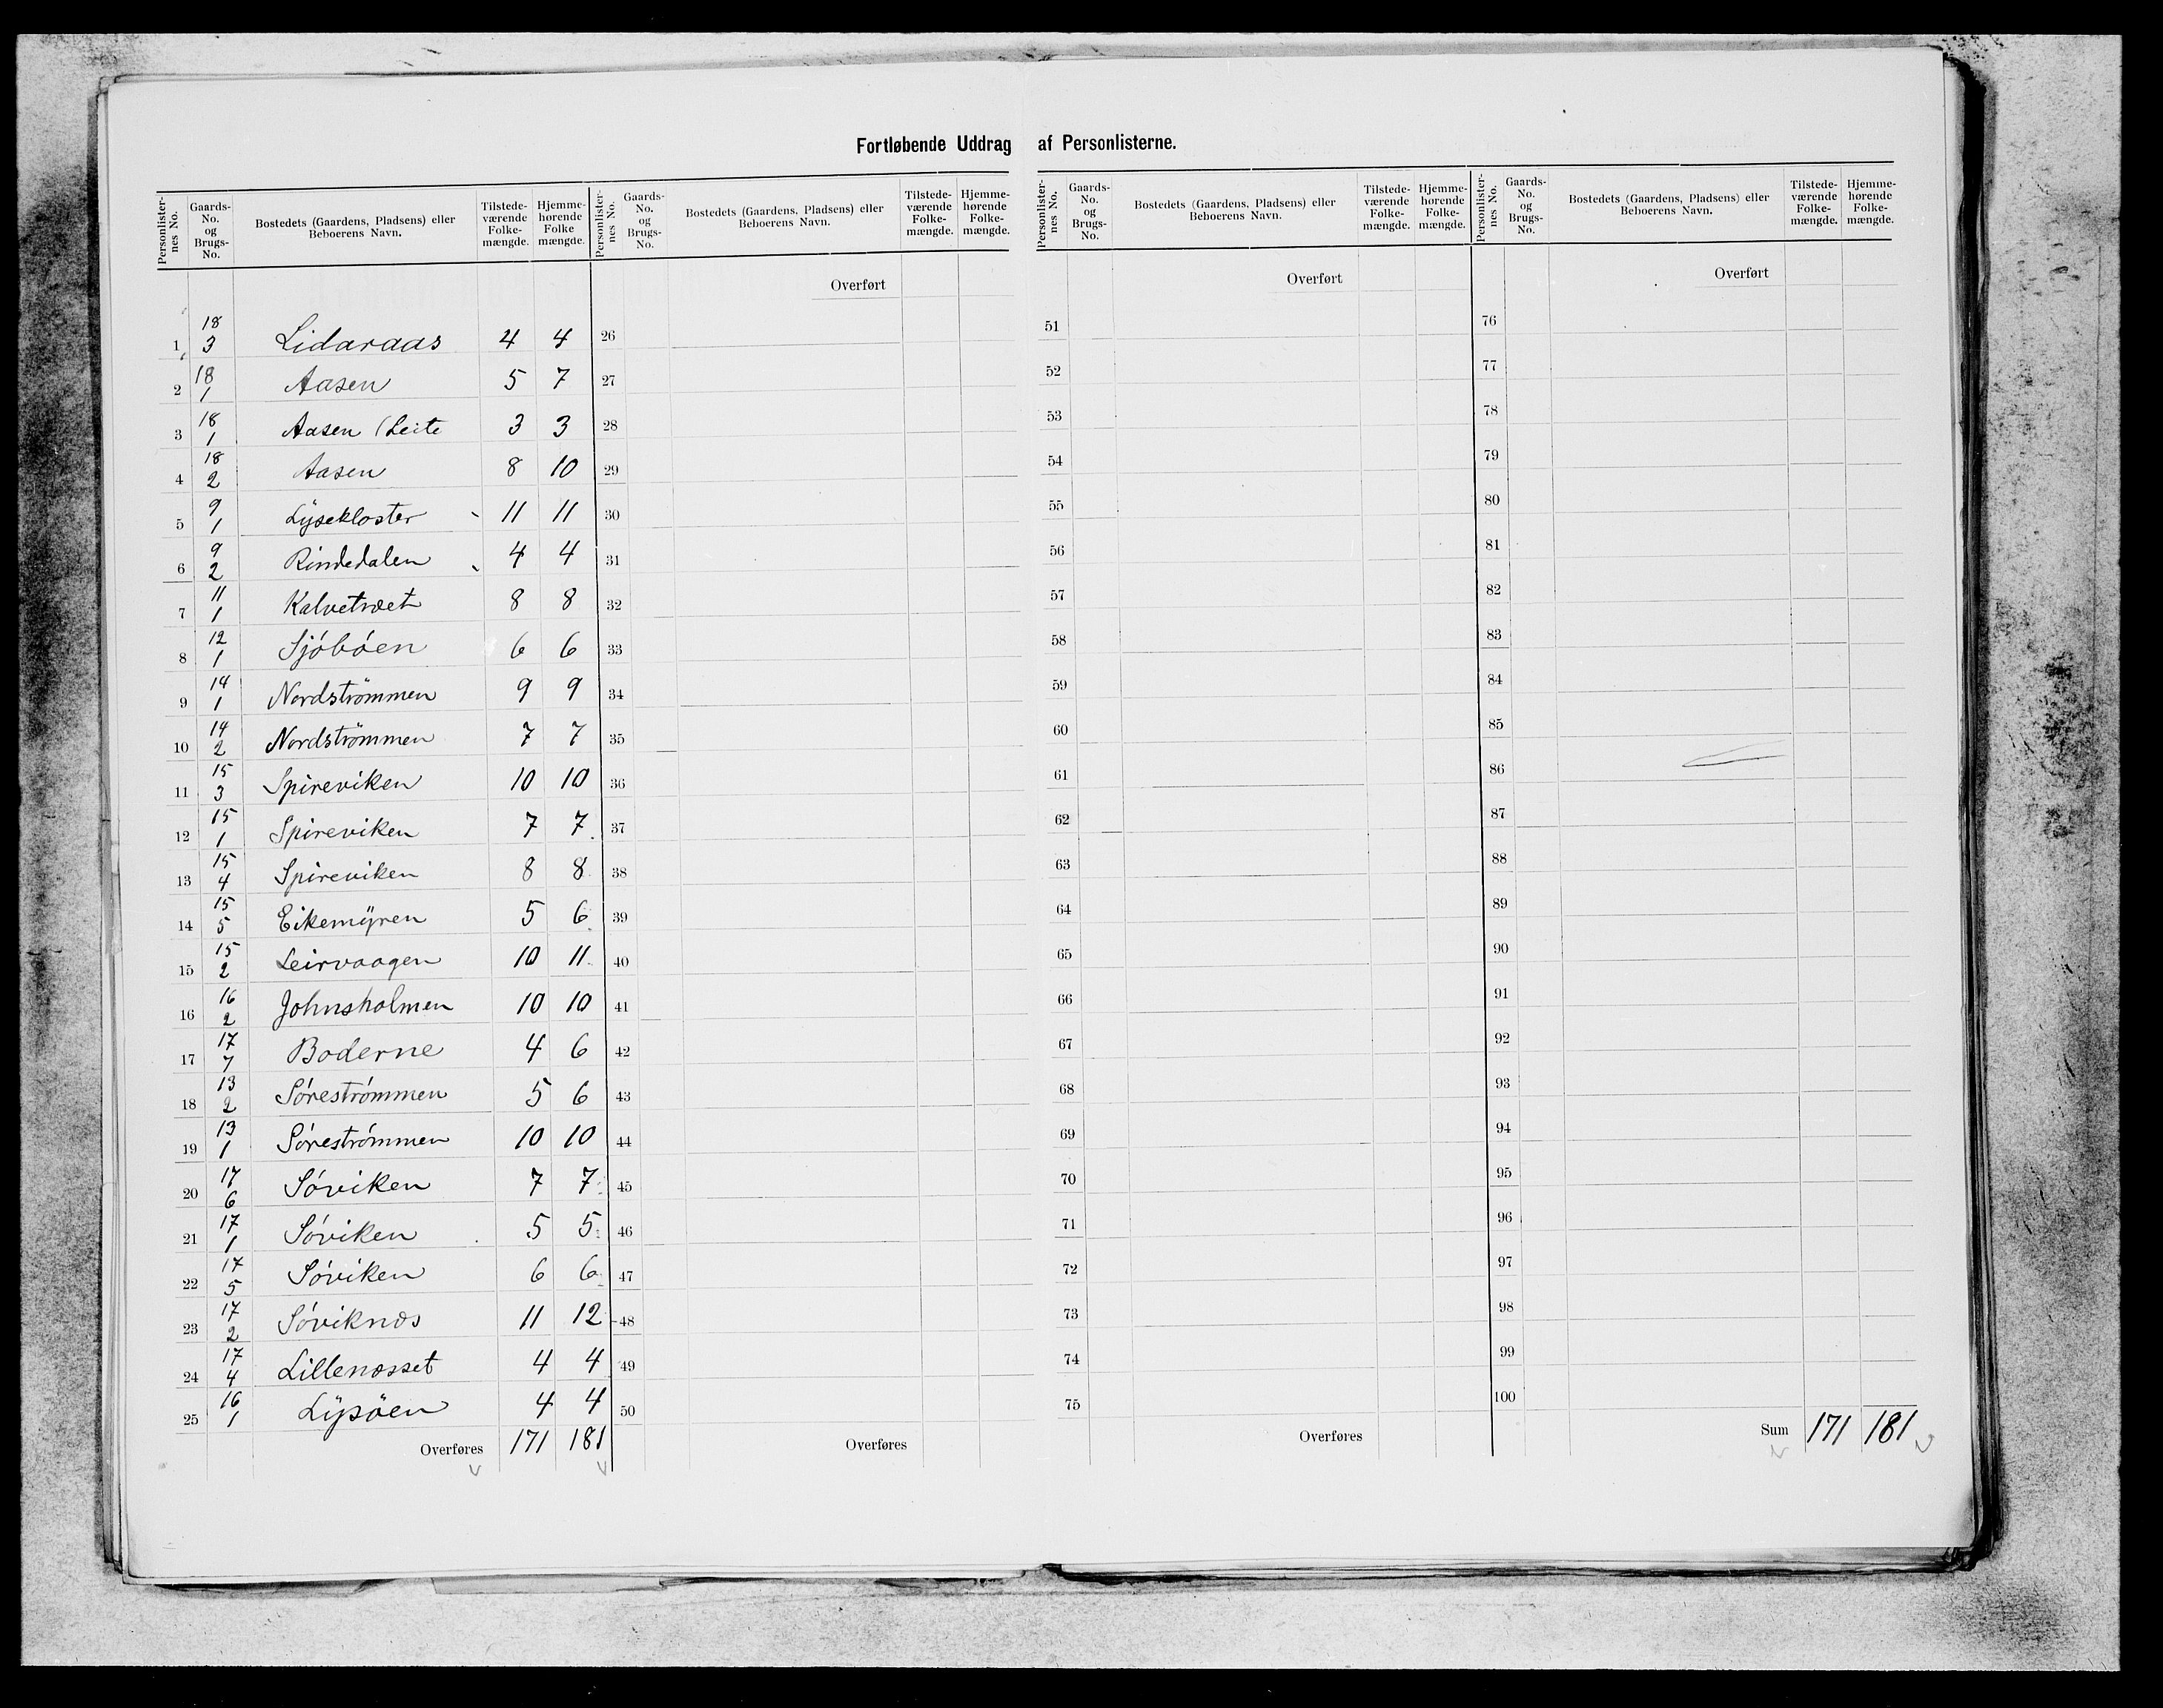 Fortløbende Uddrag af Personlisterne.
Personlisternes No. | Gaards-No. og Brugs-No. | Bostedets (Gaardens, Pladsens) eller Beboerens Navn. | Tilstedeværende Folkemængde. | Hjemmehørende Folkemængde.
1 | 18 3 | Lidaraas | 4 | 4
2 | 18 1 | Aasen | 5 | 7
3 | 18 1 | Aasen (Leite | 3 | 3
4 | 18 2 | Aasen | 8 | 10
5 | 9 1 | Lysekloster | 11 | 11
6 | 9 2 | Rindedalen | 4 | 4
7 | 11 1 | Kalvetræet | 8 | 8
8 | 12 1 | Sjóbóen | 6 | 6
9 | 14 1 | Nordströmmen | 9 | 9
10 | 14 2 | Nordströmmen | 7 | 7
11 | 15 3 | Spireviken | 10 | 10
12 | 15 1 | Spireviken | 7 | 7
13 | 15 4 | Spireviken | 8 | 8
14 | 15 5 | Eikemyren | 5 | 6
15 | 15 2 | Leirvaagen | 10 | 11
16 | 16 2 | Johnsholmen | 10 | 10
17 | 17 7 | Boderne | 4 | 6
18 | 13 2 | Sórestrómmen | 5 | 6
19 | 13 1 | Sórestrómmen | 10 | 10
20 | 17 6 | Sóviken | 7 | 7
21 | 17 1 | Sóviken | 5 | 5
22 | 17 5 | Sóviken | 6 | 6
23 | 17 2 | Sóviknæs | 11 | 12
24 | 17 4 | Lillenæsset | 4 | 4
25 | 16 1 | Lysöen | 4 | 4
Overføres | 171 | 181
Personlisternes No. | Gaards-No. og Brugs-No. | Bostedets (Gaardens, Pladsens) eller Beboerens Navn. | Tilstedeværende Folkemængde. | Hjemmehørende Folkemængde.
Overført
26
27
28
29
30
31
32
33
34
35
36
37
38
39
40
41
42
43
44
45
46
47
48
49
50
Overføres
Personlisternes No. | Gaards-No. og Brugs-No. | Bostedets (Gaardens, Pladsens) eller Beboerens Navn. | Tilstedeværende Folkemængde. | Hjemmehørende Folkemængde.
Overført
51
52
53
54
55
56
57
58
59
60
61
62
63
64
65
66
67
68
69
70
71
72
73
74
75
Overføres
Personlisternes No. | Gaards-No. og Brugs-No. | Bostedets (Gaardens, Pladsens) eller Beboerens Navn. | Tilstedeværende Folkemængde. | Hjemmehørende Folkemængde.
Overført
76
77
78
79
80
81
82
83
84
85
86
87
88
89
90
91
92
93
94
95
96
97
98
99
100
Sum | 171 | 181